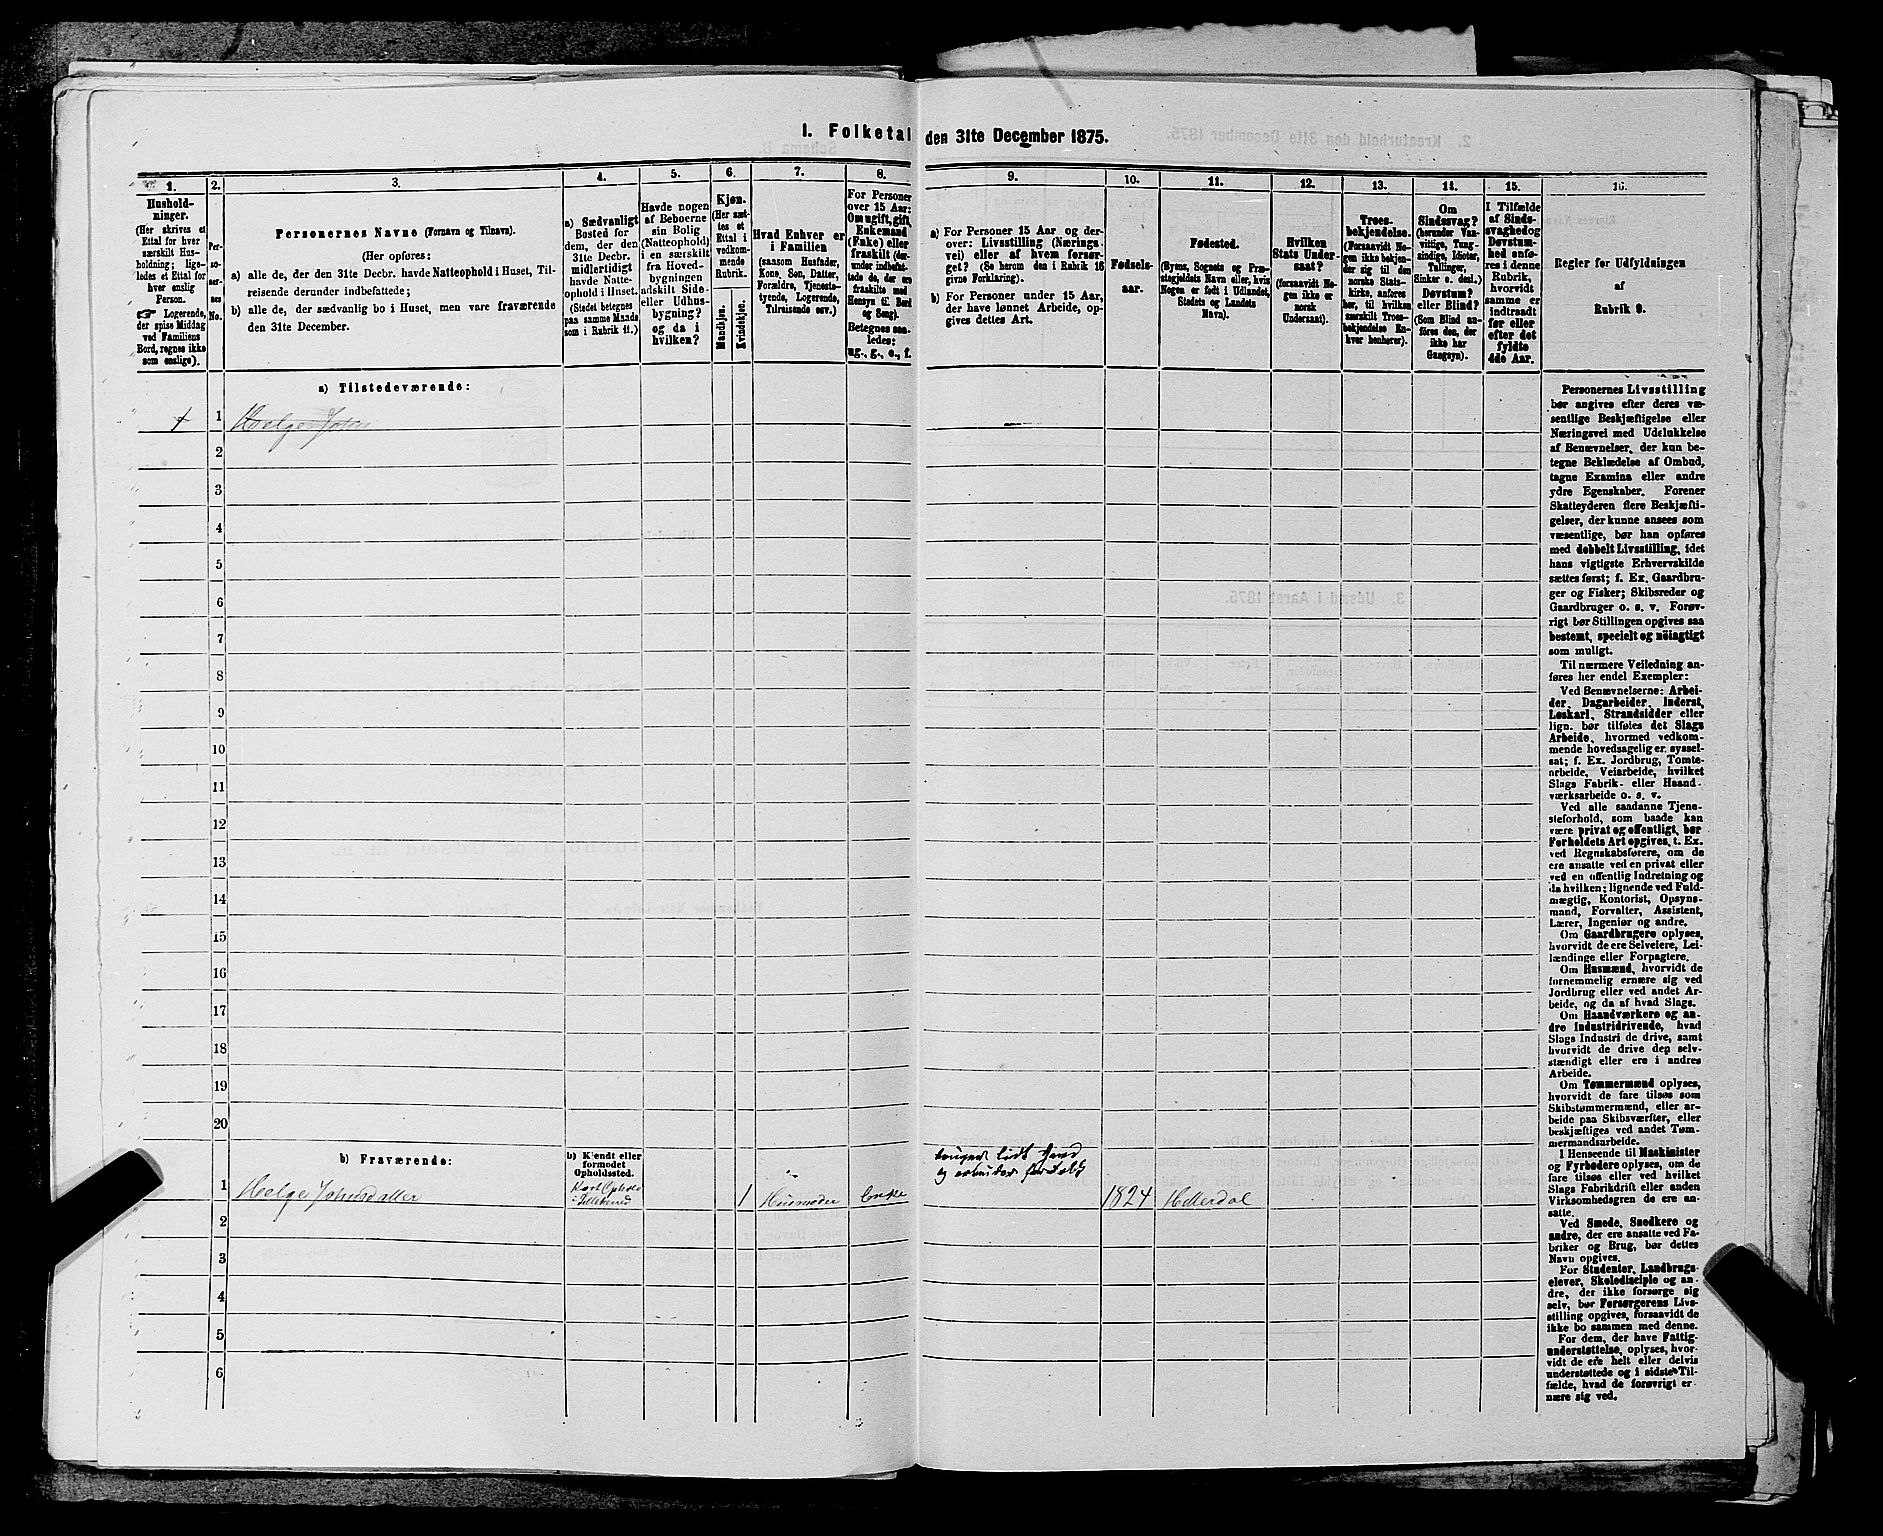 1. Folketal den 31te December 1875.
1. 2. 3. 4. 5. 6. 7. 8. 9. 10. 11. 12. 13. 14. 15. 16.
Hushold-
ninger.
(Her skrives et
Ettal for hver
særskilt Hus-
holdning; lige-
ledes et Ettal for
hver enslig
Person.
☞ Logerende,
der spise Middag
ved Familiens
Bord, regnes ikke
som enslige).
Per-
so-
ner-
nes
No.
Personernes Navne (Fornavn og Tilnavn).
(Her opføres:
a) alle de, der den 31te Decbr. havde Natteophold i Huset, Til-
reisende derunder indbefattede;
b) alle de, der sædvanlig bo i Huset, men vare fraværende
den 31te December.
a) Sædvanligt
Bosted for
dem, der den
31te Decbr.
midlertidigt
havde Natte-
ophold i Huset.
(Stedet betegnes
paa samme Maade
som i Rubrik 11.)
Havde nogen
af Beboerne
sin Bolig
(Natteophold)
i en særskilt
fra Hoved-
bygningen
adskilt Side-
eller Udhus-
bygning?
og da i
hvilken?
Kjøn.
(Her sæt-
tes et
Ettal i
vedkom-
mende
Rubrik.
Mandkjøn.
Kvindekjøn.
Hvad Enhver er
i Familien
(saasom Husfader,
Kone, Søn, Datter,
Forældre, Tjeneste-
tyende, Logerende,
Tilreisende osv.)
For Personer
over 15 Aar:
Om ugift, gift,
Enkemand
(Enke) eller
fraskilt (der-
under indbefat-
tede de, der ere
fraskilte med
Hensyn til Bord
og Seng).
Betegnes saa-
ledes:
ug., g., e., f.
a) For Personer 15 Aar og der-
over: Livsstilling (Nærings-
vei) eller af hvem forsør-
get? (Se herom den i Rubrik 16
givne Forklaring).
b) For Personer under 15 Aar,
der have lønnet Arbeide, op-
gives dettes Art.
Fødsels-
aar.
Fødested.
(Byens, Sognets og Præ-
stegjeldets Navn eller, hvis
Nogen er født i Udlandet,
Stedets og Landets
Navn).
Hvilken
Stats Under-
saat?
(forsaavidt No-
gen ikke er
norsk
Undersaat).
Troes-
bekjendelse.
(Forsaavidt No-
gen ikke bekjen-
der sig til den
norske Stats-
kirke, anføres
her, til hvilken
særskilt Troes-
bekjendelse En-
hver henhører).
Om
Sindssvag?
(herunder Van-
vittige, Tung-
sindige, Idioter,
Tullinger,
Sinker o. desl.)
Døvstum?
eller Blind?
(Som Blind an-
føres den, der
ikke har
Gangsyn).
I Tilfælde
af Sinds-
svaghed og
Døvstum-
hed anfø-
res i denne
Rubrik,
hvorvidt
samme er
indtraadt
før eller
efter det
fyldte
4de Aar.
Regler for Udfyldningen
af
Rubrik 9.
a) Tilstedeværende:
1 Helge Johns
2
3
4
5
6
7
8
9
10
11
12
13
14
15
16
17
18
19
20
b) Fraværende:
b) Kjendt eller
formodet
Opholdssted.
1 Helge Johnsdatter 1 Husmoder Enke 1824
2
3
4
5
6
Personernes Livsstilling
bør angives efter deres væ-
sentlige Beskjæftigelse eller
Næringsvei med Udelukkelse
af Benævnelser, der kun be-
tegne Beklædelse af Ombud,
tagne Examina eller andre
ydre Egenskaber. Forener
Skatteyderen flere Beskjæfti-
gelser, der kunne ansees som
væsentlige, bør han opføres
med dobbelt Livsstilling, idet
hans vigtigste Erhvervskilde
sættes først; f. Ex. Gaardbru-
ger og Fisker; Skibsreder og
Gaardbruger o. s. v. Forøv-
rigt bør Stillingen opgives saa
bestemt, specielt og nöiagtigt
som muligt.
Til nærmere Veiledning an-
føres her endel Exempler:
Ved Benævnelserne: Arbei-
der, Dagarbeider, Inderst,
Løskarl, Strandsidder eller
lign. bør tilføies det Slags
Arbeide, hvormed vedkom-
mende hovedsagelig er syssel-
sat; f. Ex. Jordbrug, Tomte-
arbeide, Veiarbeide, hvilket
Slags Fabrik- eller Haand-
værksarbeide o. s. v.
Ved alle saadanne Tjene-
steforhold, som baade kan
være privat og offentligt, bør
Forholdets Art opgives, f. Ex.
ved Regnskabsførere, om de
ere ansatte ved en privat eller
ved en offentlig Indretning og
da hvilken; lignende ved Fuld-
mægtig, Kontorist, Opsyns-
mand, Forvalter, Assistent,
Lærer, Ingeniør og andre.
Om Gaardbrugere oplyses,
hvorvidt de ere Selveiere, Lei-
lændinge eller Forpagtere.
Om Husmænd, hvorvidt de
fornemmelig ernære sig ved
Jordbrug eller ved andet Ar-
beide, og da af hvad Slags.
Om Haandværkere og an-
dre Industridrivende, hvad
Slags Industri de drive, samt
hvorvidt de drive den selv-
stændigt eller ere i andres
Arbeide.
Om Tømmermænd oplyses,
hvorvidt de fare tilsøs som
Skibstømmermænd, eller ar-
beide paa Skibsværfter, eller
beskjæftiges ved andet Tøm-
mermandsarbeide.
I Henseende til Maskinister
og Fyrbødere oplyses, om de
fare tilsøs eller ved hvilket
Slags Fabrikdrift eller anden
Virksomhedsgren de ere an-
satte.
Ved Smede, Snedkere og
andre, der ere ansatte ved Fa-
briker og Brug, bør dettes
Navn opgives.
For Studenter, Landbrugs-
elever, Skoledisciple og an-
dre, der ikke forsørge sig
selv, bør Forsørgerens Livs-
stilling opgives, forsaavidt de
ikke bo sammen med denne.
For dem, der have Fattig-
understøttelse, oplyses, hvor-
vidt de ere helt eller delvis
understøttede og i sidste Til-
fælde, hvad de forøvrigt er-
nære sig ved.